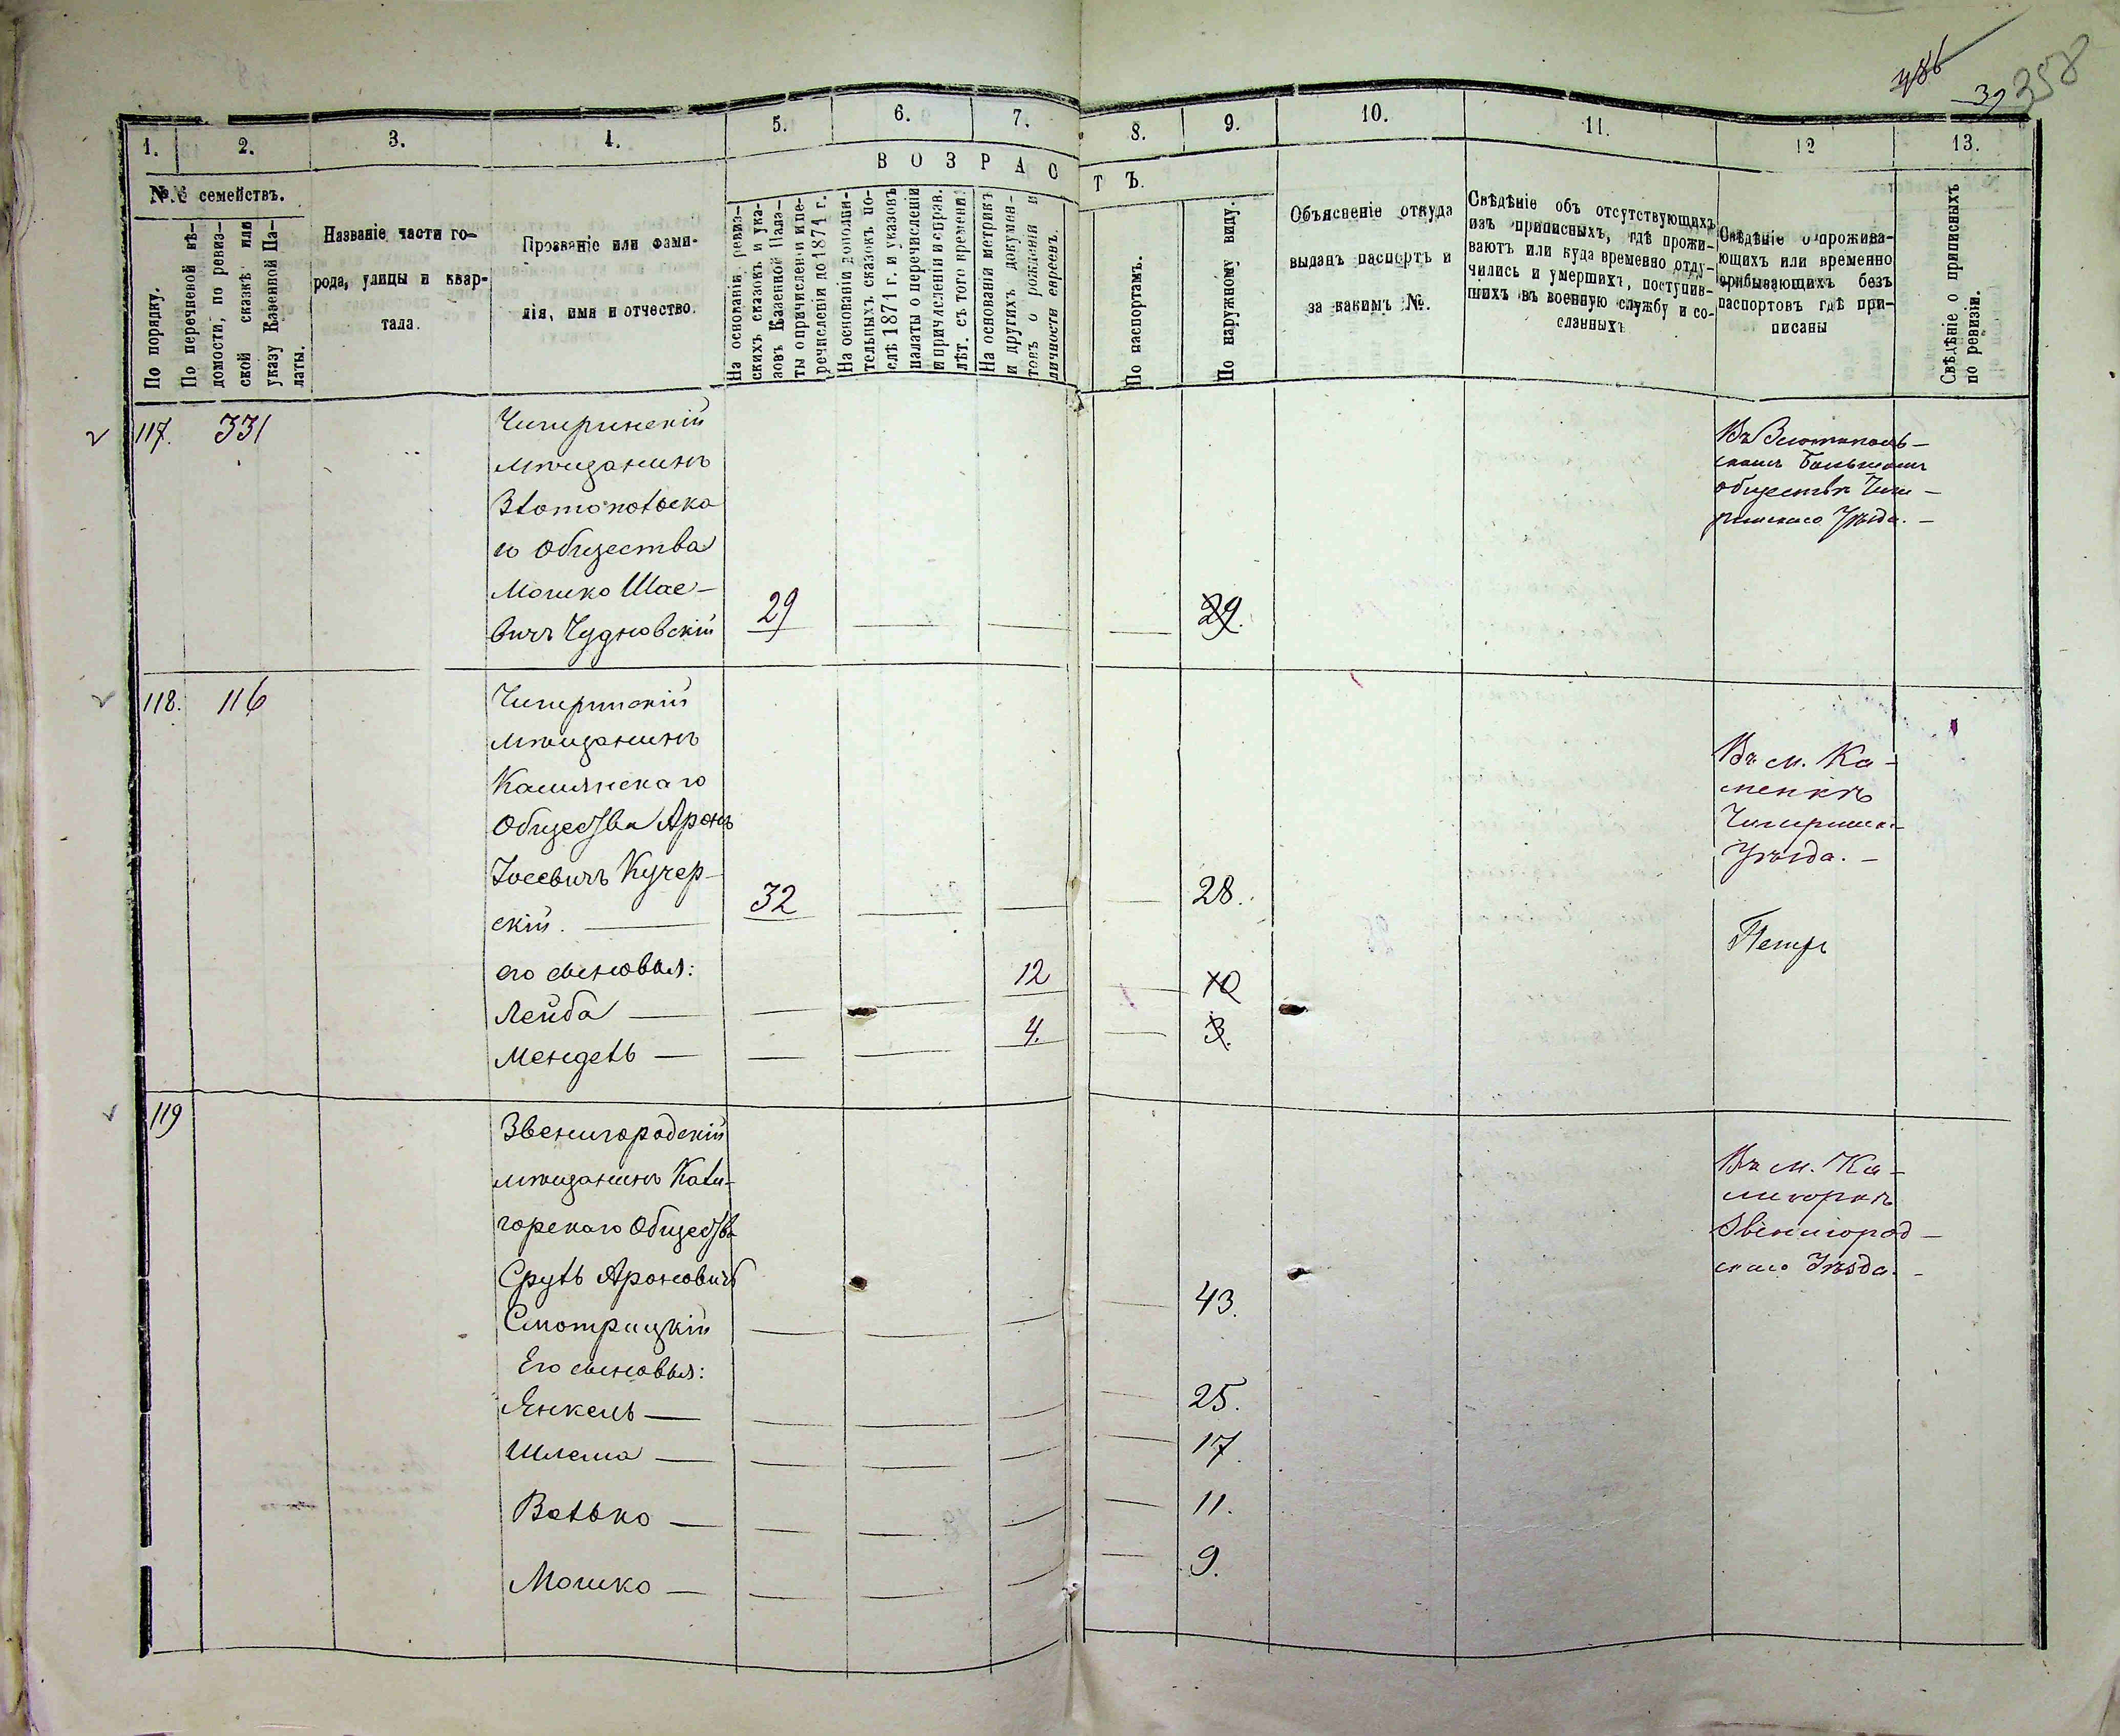 486
39
358
1.
2.
3.
4.
5.
6.
7.
8.
9.
10.
11.
12
13.
В О З Р А С Т Ъ.
№№ семействъ.
По порядку.
По перечневой вѣ-
домости, по ревиз-
ской сказкѣ или
указу Казенной Па-
латы.
Названіе части го-
рода, улицы и квар-
тала.
Прозваніе или фами-
лія, имя и отчество.
На основаніи ревиз-
скихъ сказокъ и ука-
зовъ Казенной Пала-
ты о причисленіи и пе-
речисленіи до 1871 г.
На основаніи дополни-
тельныхъ сказокъ по-
слѣ 1871 г. и указовъ
палаты о перечисленіи
и причисленіи справ.
лѣт. съ того времени.
На основаніи метрикъ
и другихъ докумен-
товъ о рожденіи и
личности евреевъ.
По паспортамъ.
По наружному виду.
Объясненіе откуда
выданъ паспортъ и
за какимъ №.
Свѣдѣніе объ отсутствующихъ
изъ приписныхъ, гдѣ прожи-
ваютъ или куда временно отлу-
чились и умершихъ, поступив-
шихъ въ военную службу и со-
сланныхъ
Свѣдѣніе о прожива-
ющихъ или временно
прибывающихъ безъ
паспортовъ гдѣ при-
писаны
Свѣдѣніе о приписныхъ
по ревизіи.
117. 331
Чигиринскій
мѣщанинъ
Златопольска
го Общества
Мошко Шае-
вичъ Чудновскій 29 29.
Въ Златополь-
скомъ
обществѣ Чиги-
ринскаго Уѣзда.
118. 116
Чигиринскій
мѣщанинъ
Камянскаго
Общества Аронъ
Іосевичъ Кучер-
скій. 32 28.
его сыновья:
Лейба 12 10
Мендель 4. 3.
Въ м. Ка-
менкѣ
Чигиринск.
Уѣзда.
119
Звенигородскій
мѣщанинъ Кали-
горскаго Общества
Сруль Ароновичъ
Смотрицкій 43.
Его сыновья:
Янкель 25.
Шлема 17.
Волько 11.
Мошко 9.
Въ м. Ка-
лигоркѣ
Звенигород-
скаго Уѣзда.